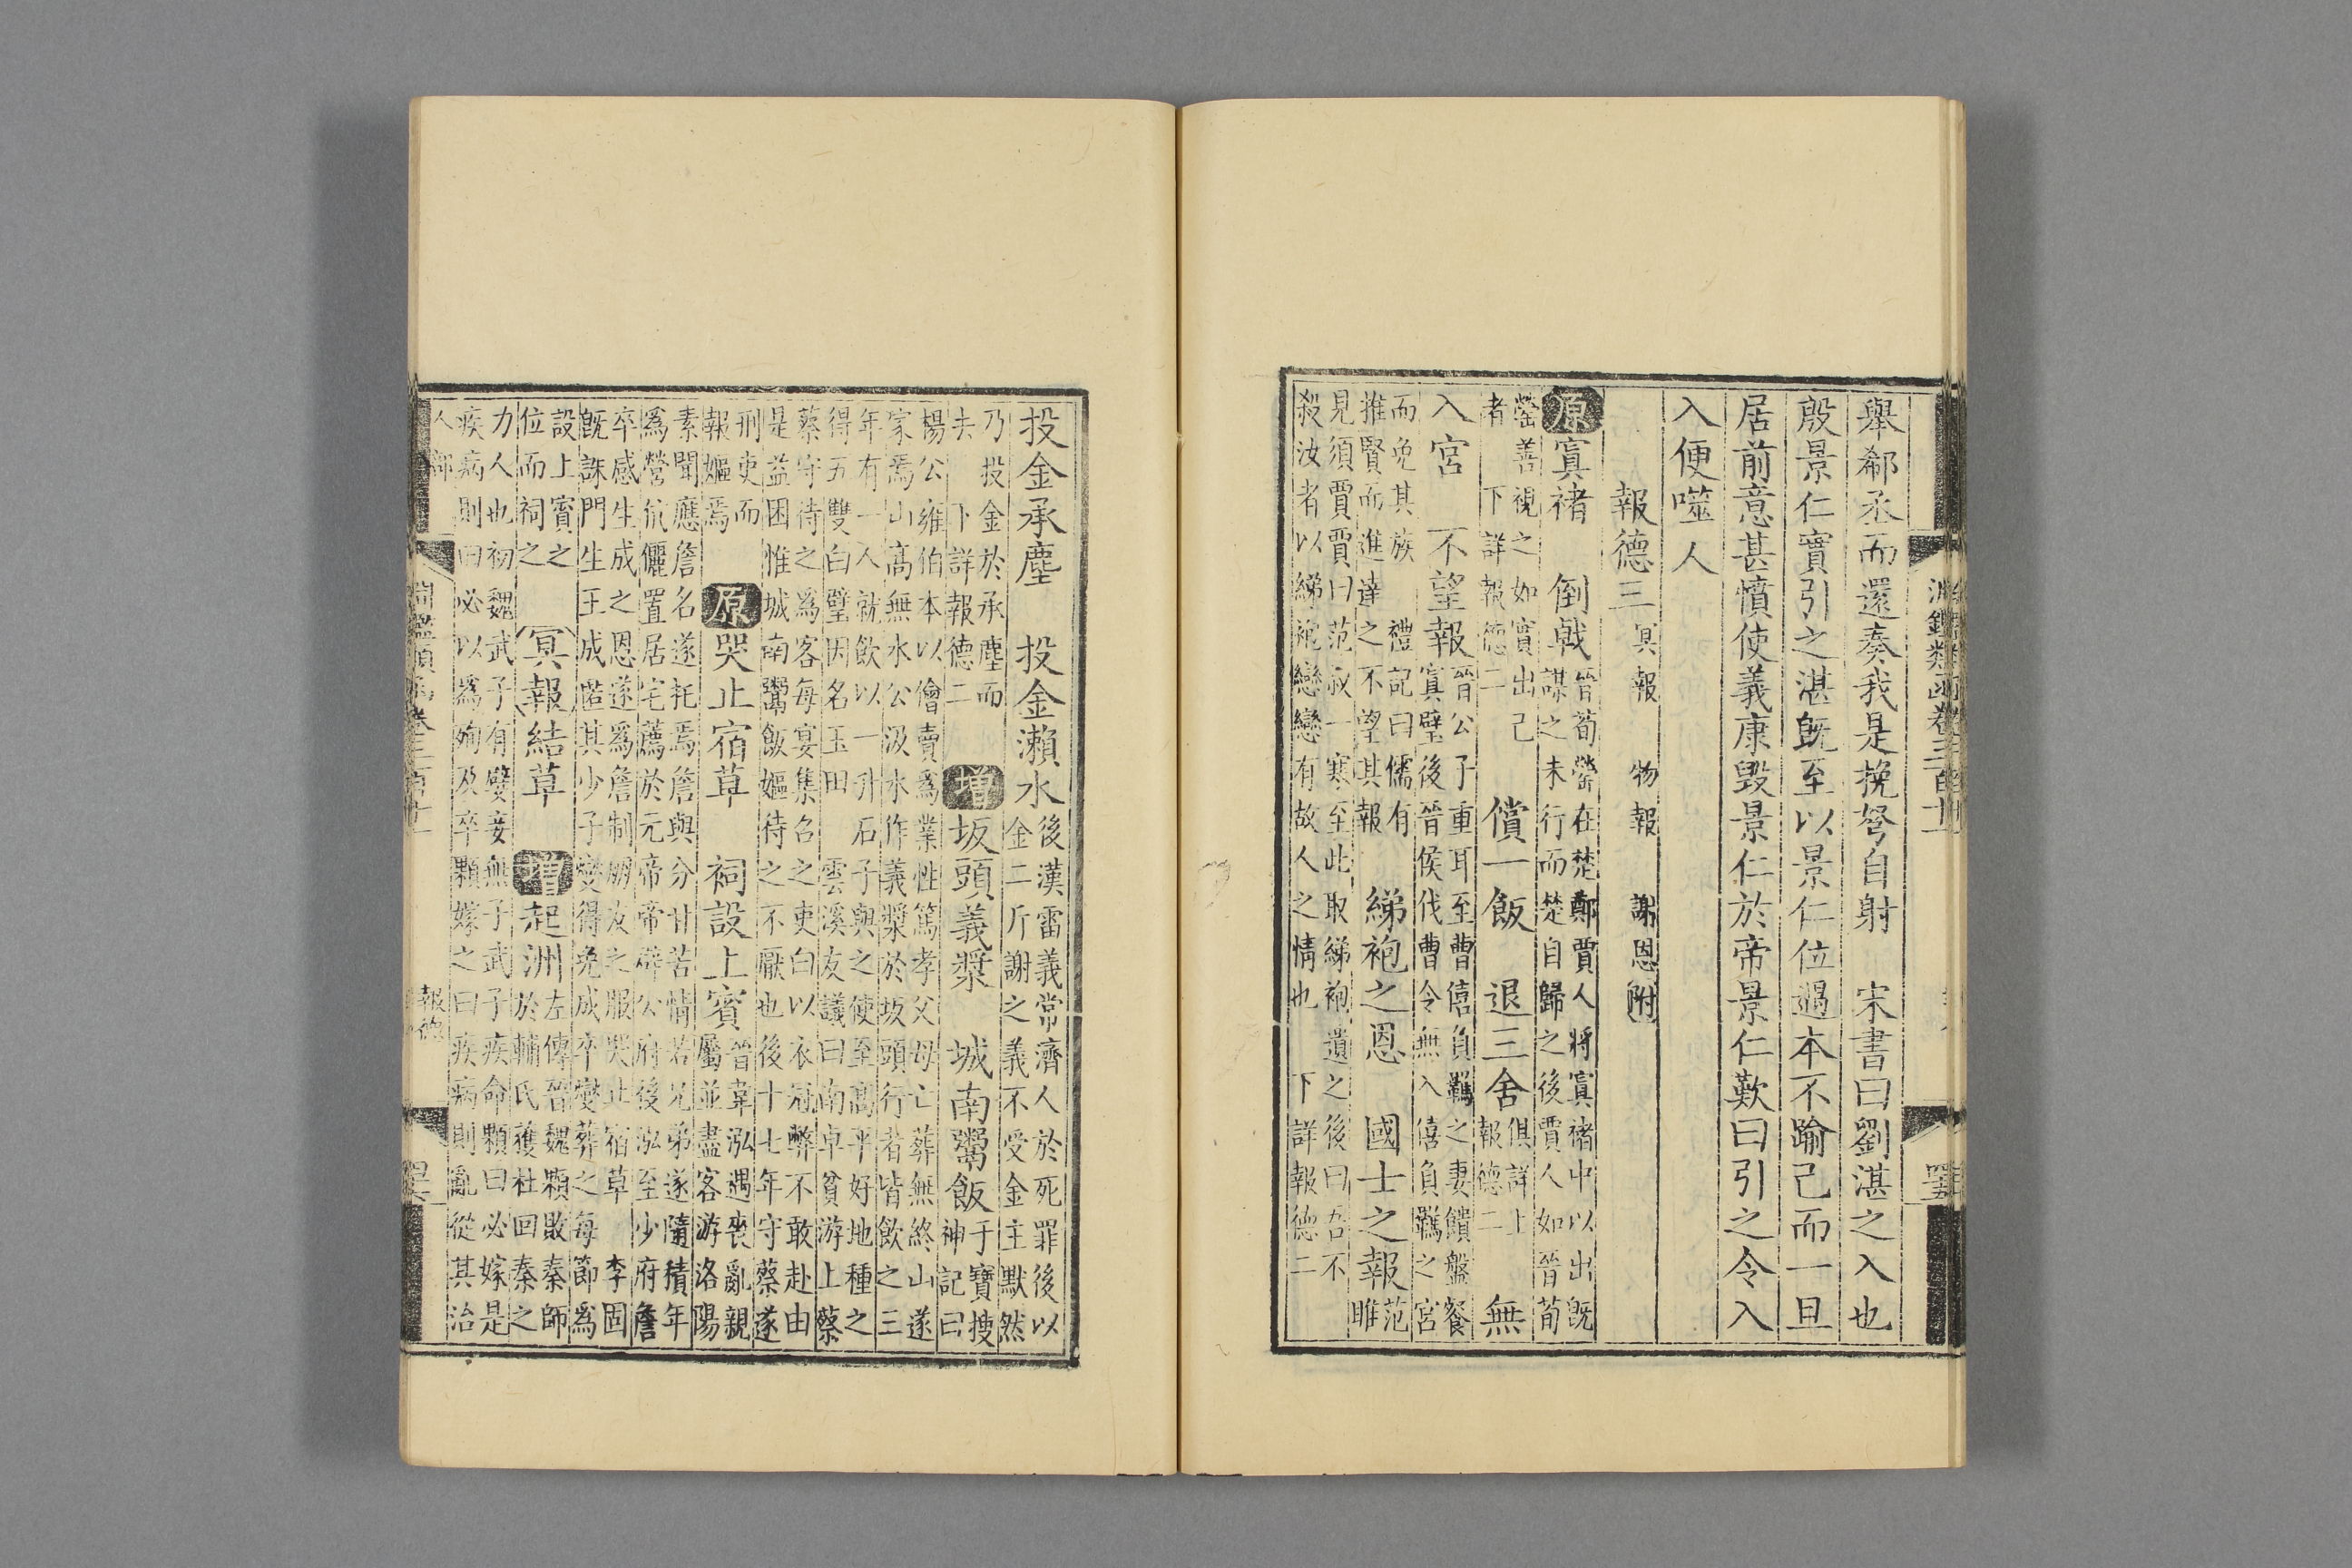 淵鑑類函卷三百十一
舉郗丞而還奏我是挽弩自射　宋書曰劉湛之入也
殷景仁實引之湛既至以景仁位遇本不踰己而一旦
居前意甚憤使義康毁景仁於帝景仁歎曰引之令入
入便噬人
報德三冥報　物報　謝恩附
原寘褚　倒戟晉荀罃在楚鄭賈人將寘褚中以出既
謀之未行而楚自歸之後賈人如晉荀
罃善視之如實出己
者　下詳報德二　償一飯　退三舍俱詳上
報德二　無
入宮　不望報晉公子重耳至曹僖負羈之妻饋盤餐
寘璧後晉侯伐曹令無入僖負羈之宮
而免其族　禮記曰儒有
推賢而進達之不望其報　綈袍之恩　國士之報范
睢
見須賈賈曰范叔一寒至此取綈袍遺之後曰吾不
殺汝者以綈袍戀戀有故人之情也　下詳報德二
投金承塵　投金瀨水後漢雷義常濟人於死罪後以
金二斤謝之義不受金主默然
乃投金於承塵而
去　下詳報德二　增坂頭義漿　城南鬻飯于寶搜
神記曰
楊公雍伯本以儈賣爲業性篤孝父母亡葬無終山遂
家焉山高無水公汲水作義漿於坂頭行者皆飲之三
年有一人就飲以一升石子與之使至高平好地種之
得五雙白璧因名玉田　雲溪友議曰南卓貧游上蔡
蔡守待之爲客每宴集召之吏白以衣冠弊不敢赴由
是益困惟城南鬻飯嫗待之不厭也後十七年守蔡遂
刑吏而
報嫗焉　原哭止宿草　祠設上賓晉韋泓遇喪亂親
屬並盡客游洛陽
素聞應詹名遂托焉詹與分甘苦情若兄弟遂隨積年
爲營伉儷置居宅薦於元帝帝辟公府後泓至少府詹
卒感生成之恩遂爲詹制朋友之服哭止宿草　李固
既誅門生王成匿其少子燮得免成卒燮葬之每節爲
設上賓之
位而祠之　冥報結草　增起洲左傳晉魏顆敗秦師
於輔氏獲杜回秦之
力人也初魏武子有嬖妾無子武子疾命顆曰必嫁是
疾病則曰必以爲殉及卒顆嫁之曰疾病則亂從其治
人部
報德